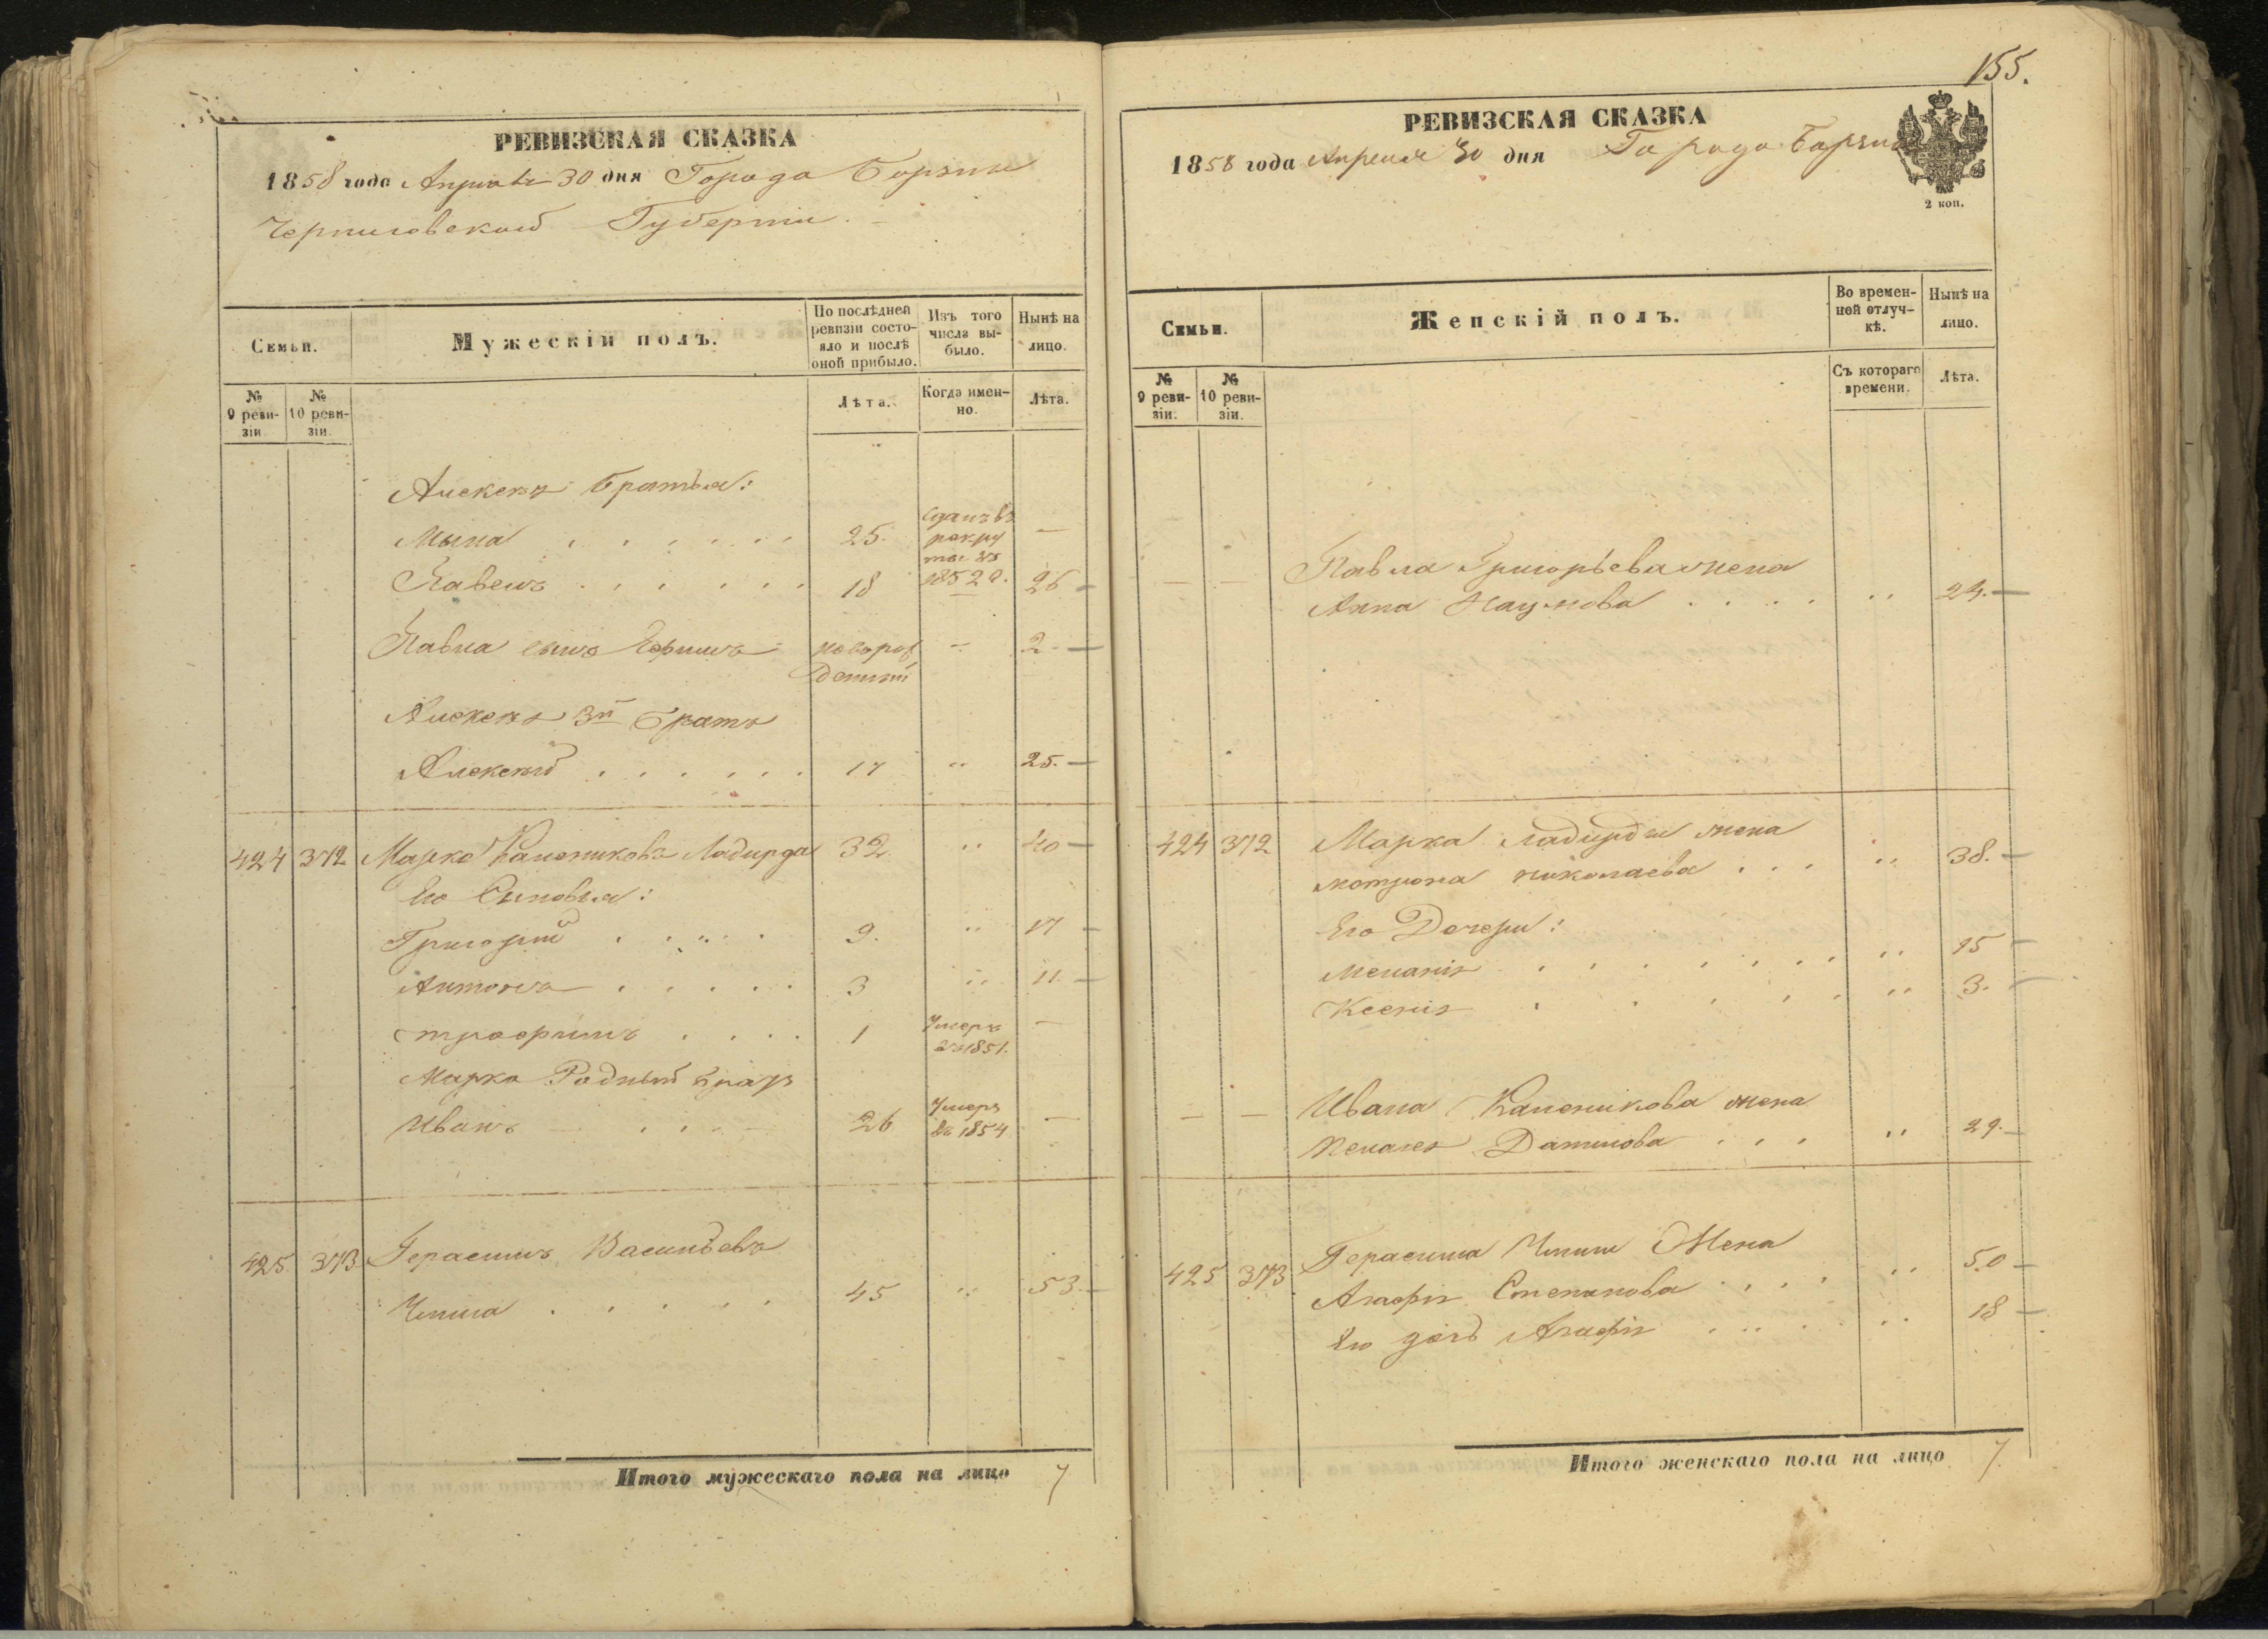 РЕВИЗСКАЯ СКАЗКА
1858 года Апреля 30 дня Города Борзны
Черниговской Губернии.
Семьи.
Мужескій полъ.
По послѣдней ревизіи состояло и послѣ оной прибыло.
Изъ того числа выбыло.
Нынѣ на лицо.
№ 9 ревизіи.
№ 10 ревизіи.
Лѣта.
Когда именно.
Лѣта.
братья:
Мына 25. сданъ въ рекруты въ 1852 г. —
Павелъ 18 26 —
Павла сынъ новорожденный — 2 —
3й братъ
Алексей 17 " 25. —
424 372 Марко Лабирда 32 " 40 —
Его Сыновья:
Григорий 9. " 17 —
Антонъ 3 " 11. —
трофимъ 1 Умеръ въ 1851. —
Марка Родный братъ
Иванъ 26 Умеръ въ 1854 —
425 373 Герасимъ Васильевъ
45 " 53. —
Итого мужескаго пола на лицо 7
155.
РЕВИЗСКАЯ СКАЗКА
1858 года Апреля 30 дня Города Борзны
2 коп.
Семьи.
Женскій полъ.
Во временной отлучкѣ.
Нынѣ на лицо.
№ 9 ревизіи.
№ 10 ревизіи.
Съ котораго времени.
Лѣта.
— — Павла Григорьева жена
Анна Наумова " 24. —
424 372 Марка Лабирды жена
мотрона николаева " 38. —
Его Дочери:
Меланія " 15 —
Ксенія " 3. —
— — Ивана жена
Пелагея Данилова " 29. —
425 373 Герасима Жена
Агафія Степанова " 50 —
Его дочь Агафія " 18 —
Итого женскаго пола на лицо 7